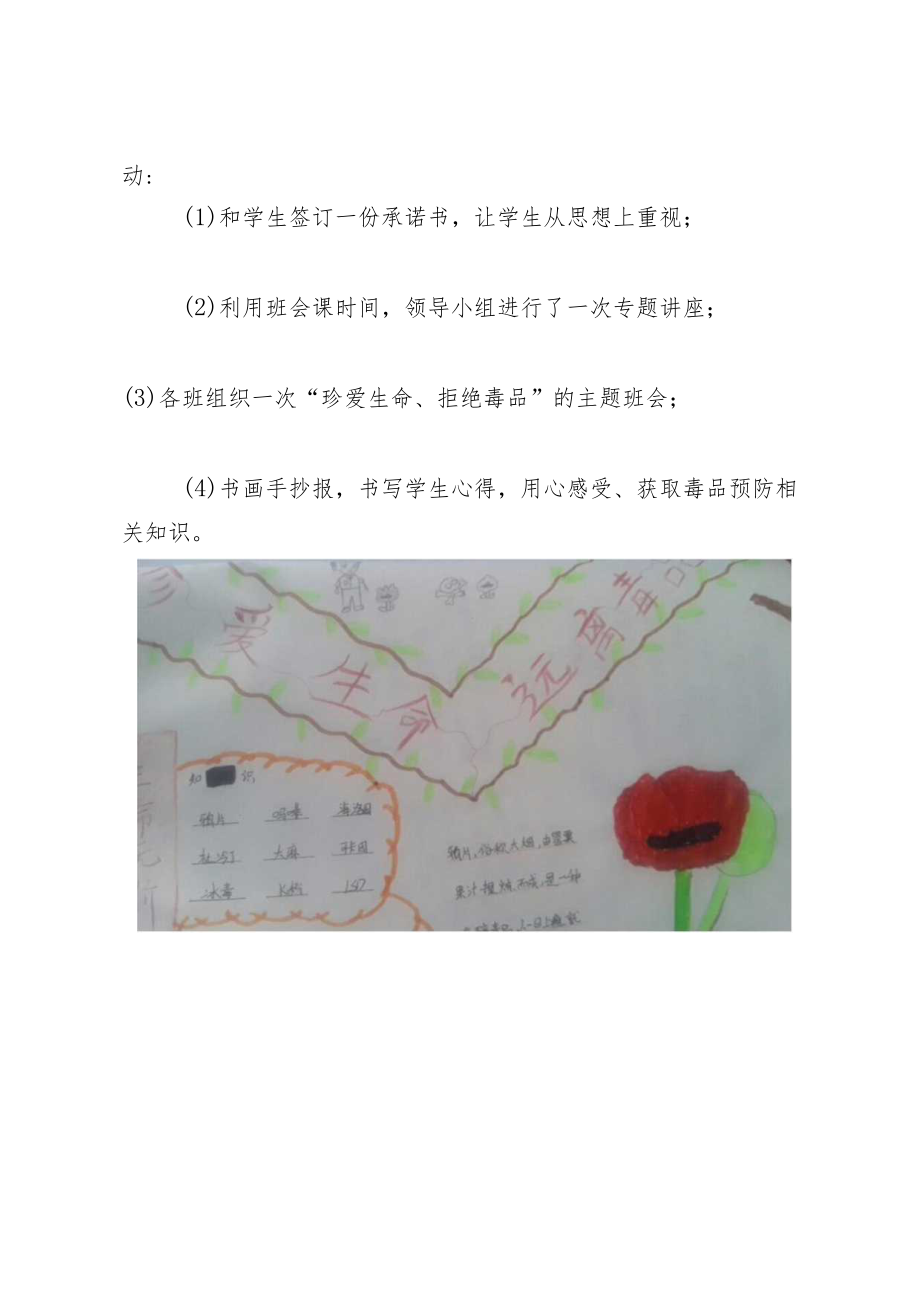 动:
(1)和学生签订一份承诺书，让学生从思想上重视；
(2)利用班会课时间，领导小组进行了一次专题讲座；
(3)各班组织一次“珍爱生命、拒绝毒品”的主题班会；
(4)书画手抄报，书写学生心得，用心感受、获取毒品预防相
关知识。
爱 生 命 远离毒品
知 识
鸦片 吗啡 海洛因
杜冷丁 大麻
冰毒 K粉
鸦片，俗称大烟，由罂粟
果汁 一种